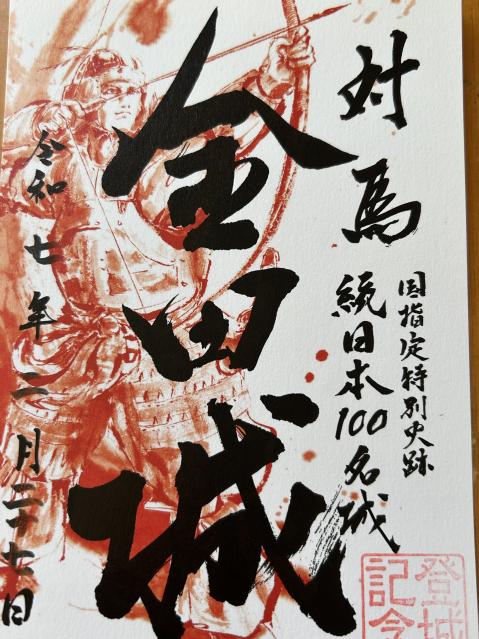 対馬
国指定特別史跡
続日本100名城
金田城
令和七年二月二十七日
登城
記念